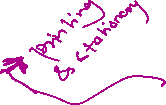 printing
& stationary